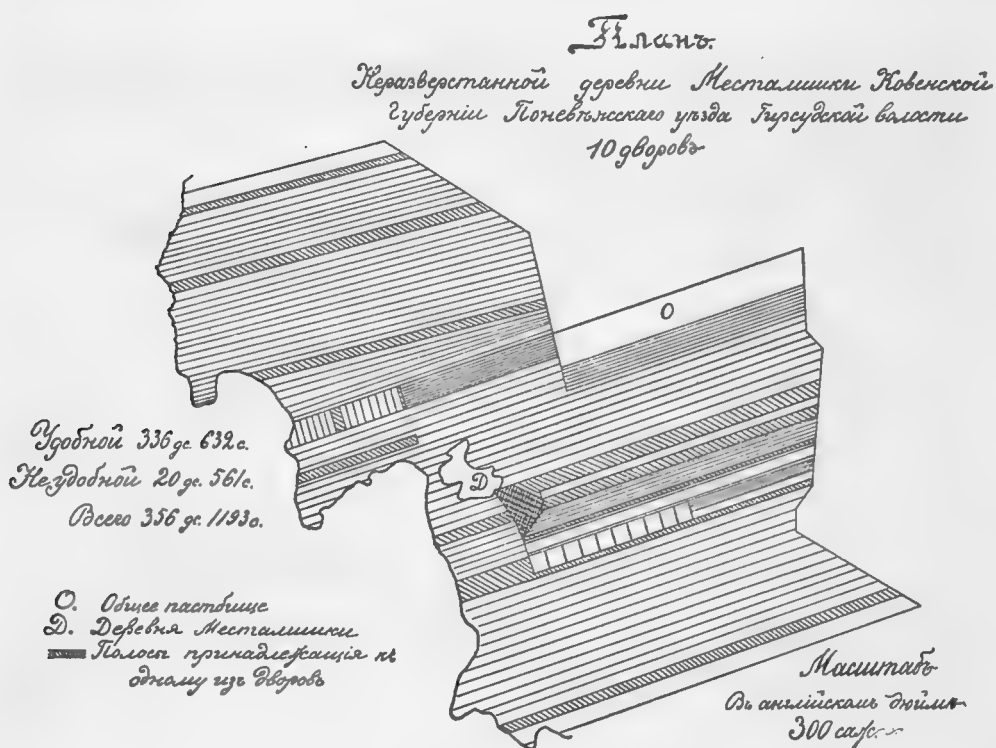 Планъ.
Неразверстанной деревни Месталишки Ковенской
Губерніи Поневѣжскаго уѣзда Гирсудской волости
10 дворовъ
O
Удобной 336 дс. 632 с.
Неудобной 20 дс. 561 с.
Всего 356 дс. 1193 с.
D
O. Общее пастбище
D. Деревня Месталишки
Полосы принадлежащія къ
одному изъ дворовъ
Масштабъ
Въ англійскомъ дюймѣ
300 саж.